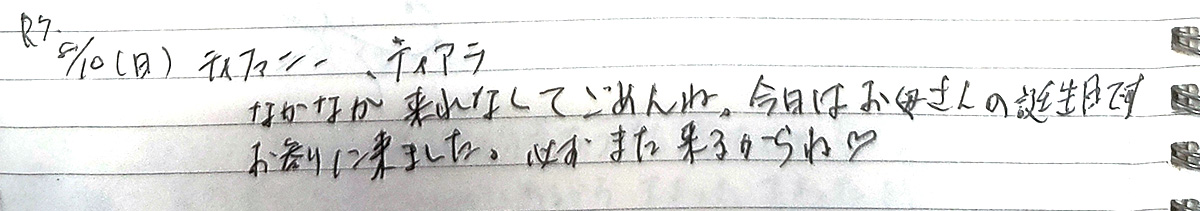 R7.
8/10(日) ティファニー、ティアラ
なかなか来れなくてごめんね。今日はお母さんの誕生日です
お参りに来ました。必ずまた来るからね♡